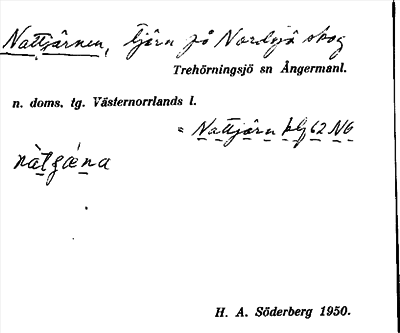 Nattjärnen, tjärn på Nordsjö skog
Trehörningsjö sn Ångermanl.
n. doms. tg. Västernorrlands l.
= Nattjärn blj 62 N6
nàt̀gǽna
H. A. Söderberg 1950.